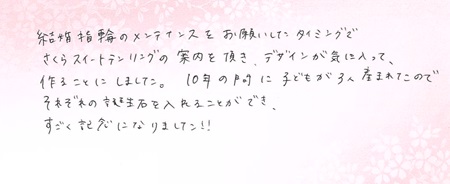 結婚指輪のメンテナンスをお願いしたタイミングで
さくらスイートテンリングの案内を頂き、デザインが気に入って、
作ることにしました。10年の間に子どもが3人産まれてたので
それぞれの誕生石を入れることができ、
すごく記念になりました!!